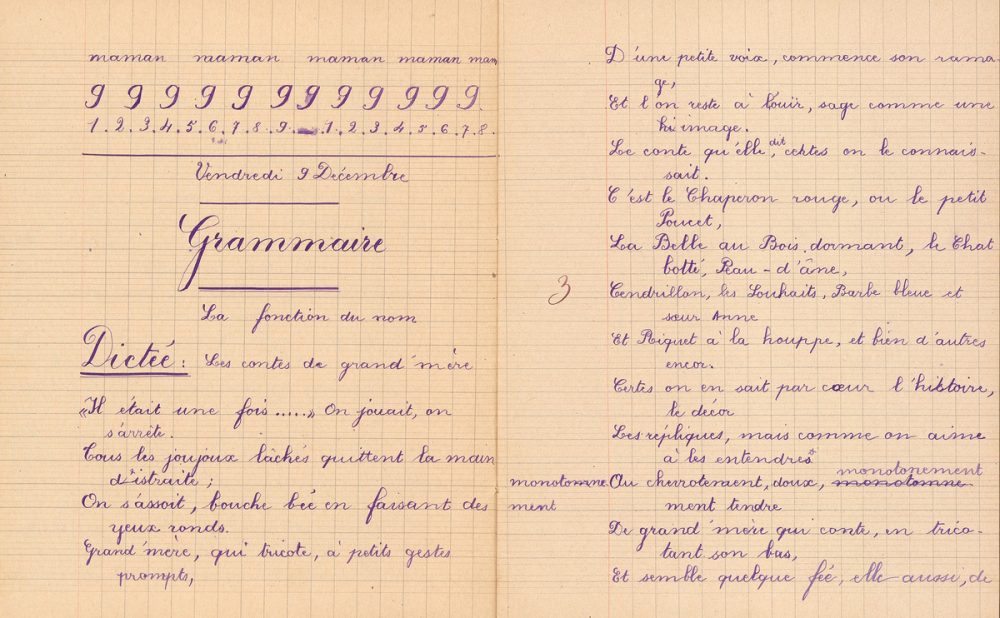 maman maman maman maman mam
9 9 9 9 9 9 9 9 9 9 9 9
1.2.3.4.5.6.7.8.9. 1.2.3.4.5.6.7.8.
Vendredi 9 Décembre
Grammaire
La fonction du nom
Dictée : Les contes de grand'mère
« Il était une fois.....» On jouait, on
s'arrête.
Tous les joujoux lâchés quittent la main
distraite ;
On s'assoit, bouche bée en faisant des
yeux ronds.
Grand'mère, qui tricote, à petits gestes
prompts,
D'une petite voix, commence son rama-
ge,
Et l'on reste à l'ouïr, sage comme une
image.
Le conte qu'elle dit, certes on le connais-
sait.
C'est le Chaperon rouge, ou le petit
Poucet,
La Belle au Bois dormant, le Chat
botté, Peau-d'âne,
3
Cendrillon, les Souhaits, Barbe bleue et
sœur Anne
Et Riquet à la houppe, et bien d'autres
encor.
Certes on en sait par cœur l'histoire,
le décor
Les répliques, mais comme on aime
à les entendres
monotonement
monotomne Au chevrotement, doux, monotomne
ment ment tendre
De grand'mère qui conte, en trico-
tant son bas,
Et semble quelque fée, elle aussi, de